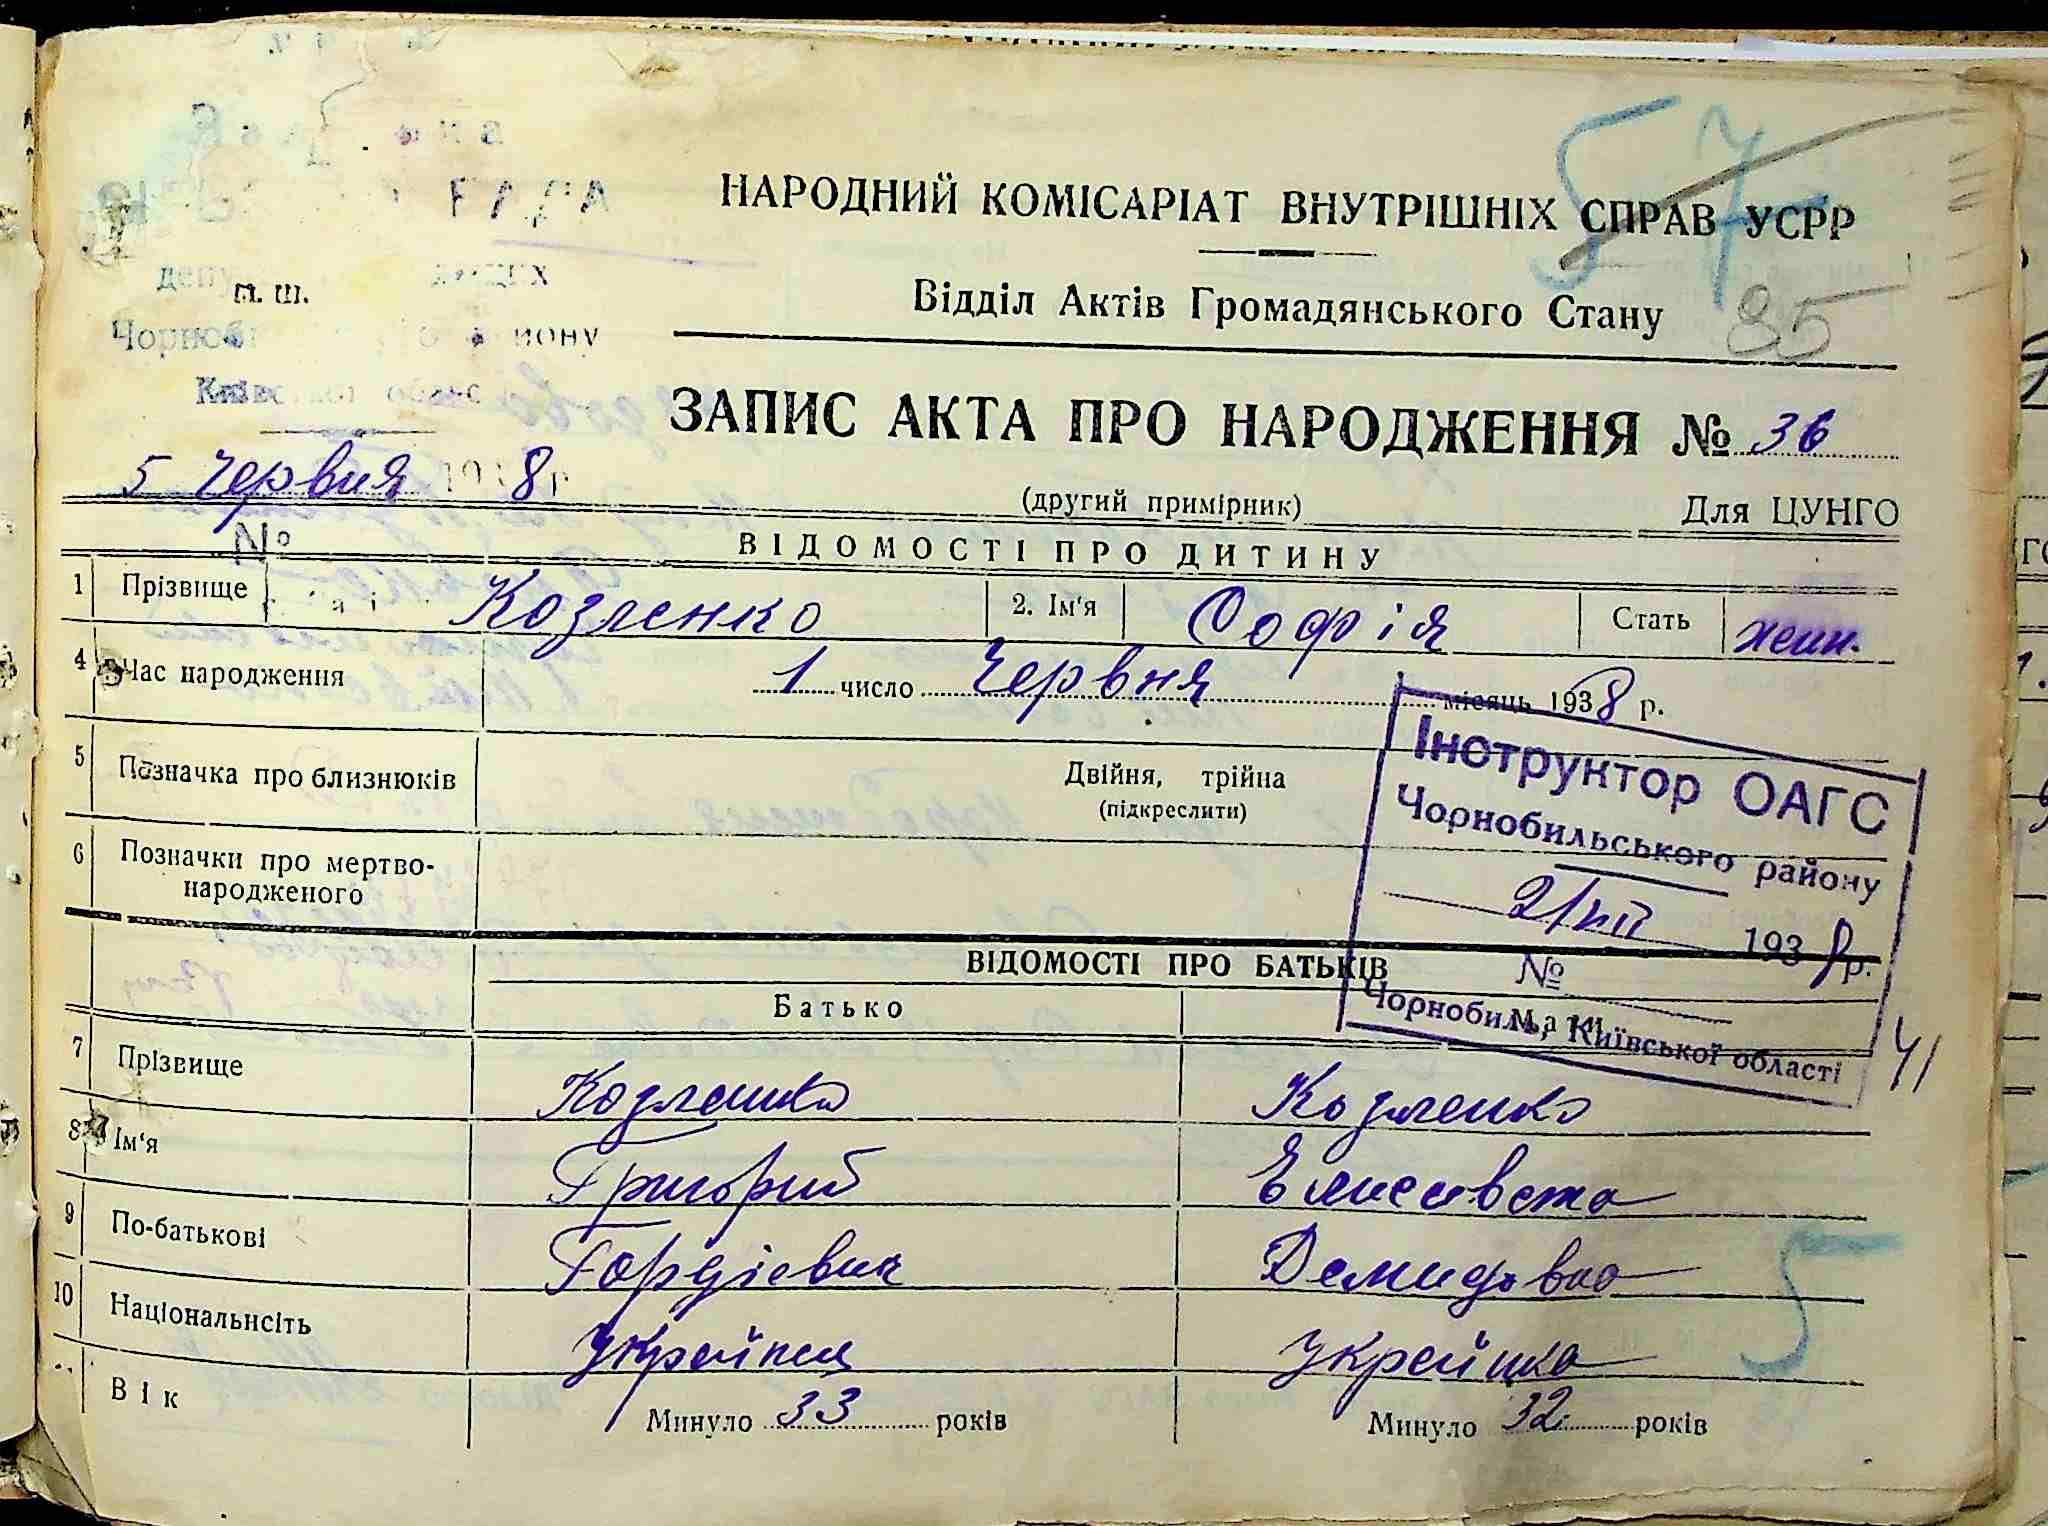 НАРОДНИЙ КОМІСАРІАТ ВНУТРІШНІХ СПРАВ УСРР
57
Відділ Актів Громадянського Стану
85
п. ш.
ЗАПИС АКТА ПРО НАРОДЖЕННЯ № 36
5 Червня 1938 г
(другий примірник) Для ЦУНГО
№
ВІДОМОСТІ ПРО ДИТИНУ
1 Прізвище Козленко 2. Ім'я Софія Стать жен.
4 Час народження 1 число Червня місяць 1938 р.
5 Позначка про близнюків Двійня, трійна
(підкреслити)
6 Позначки про мертво-
народженого
Інструктор ОАГС
Чорнобильського району
21/VII 1938 р.
№
Чорнобиль, Київської області
41
ВІДОМОСТІ ПРО БАТЬКІВ
Батько Мати
7 Прізвище Козленко Козленко
8 Ім'я Григорий Елисовета
9 По-батькові Гордієвич Демидовна
10 Національнсіть Українец Українка
5
Вік Минуло 33 років Минуло 32 років